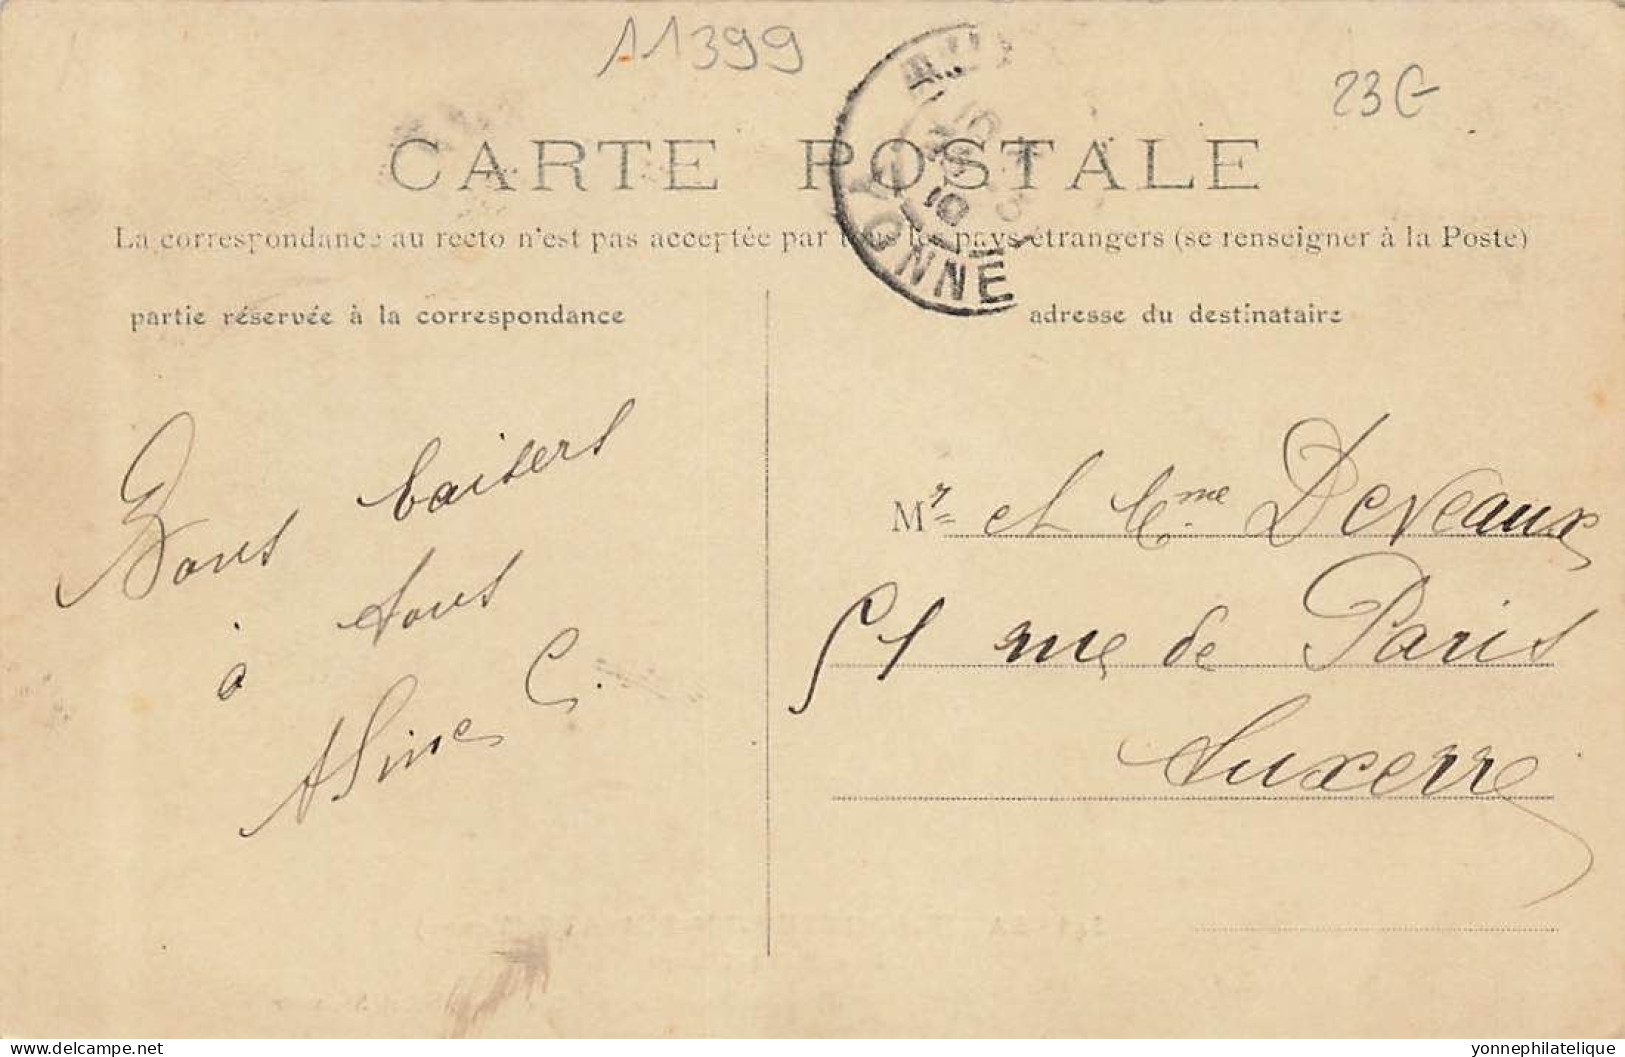 11399
23€
CARTE POSTALE
La correspondance au recto n'est pas acceptée par tous les pays étrangers (se renseigner à la Poste)
YONNE
partie réservée à la correspondance
adresse du destinataire
Bons baisers
à tous
Aline C.
Mr et Mme Deveaux
51 rue de Paris
Auxerre
delcampe.net
yonnephilatelique